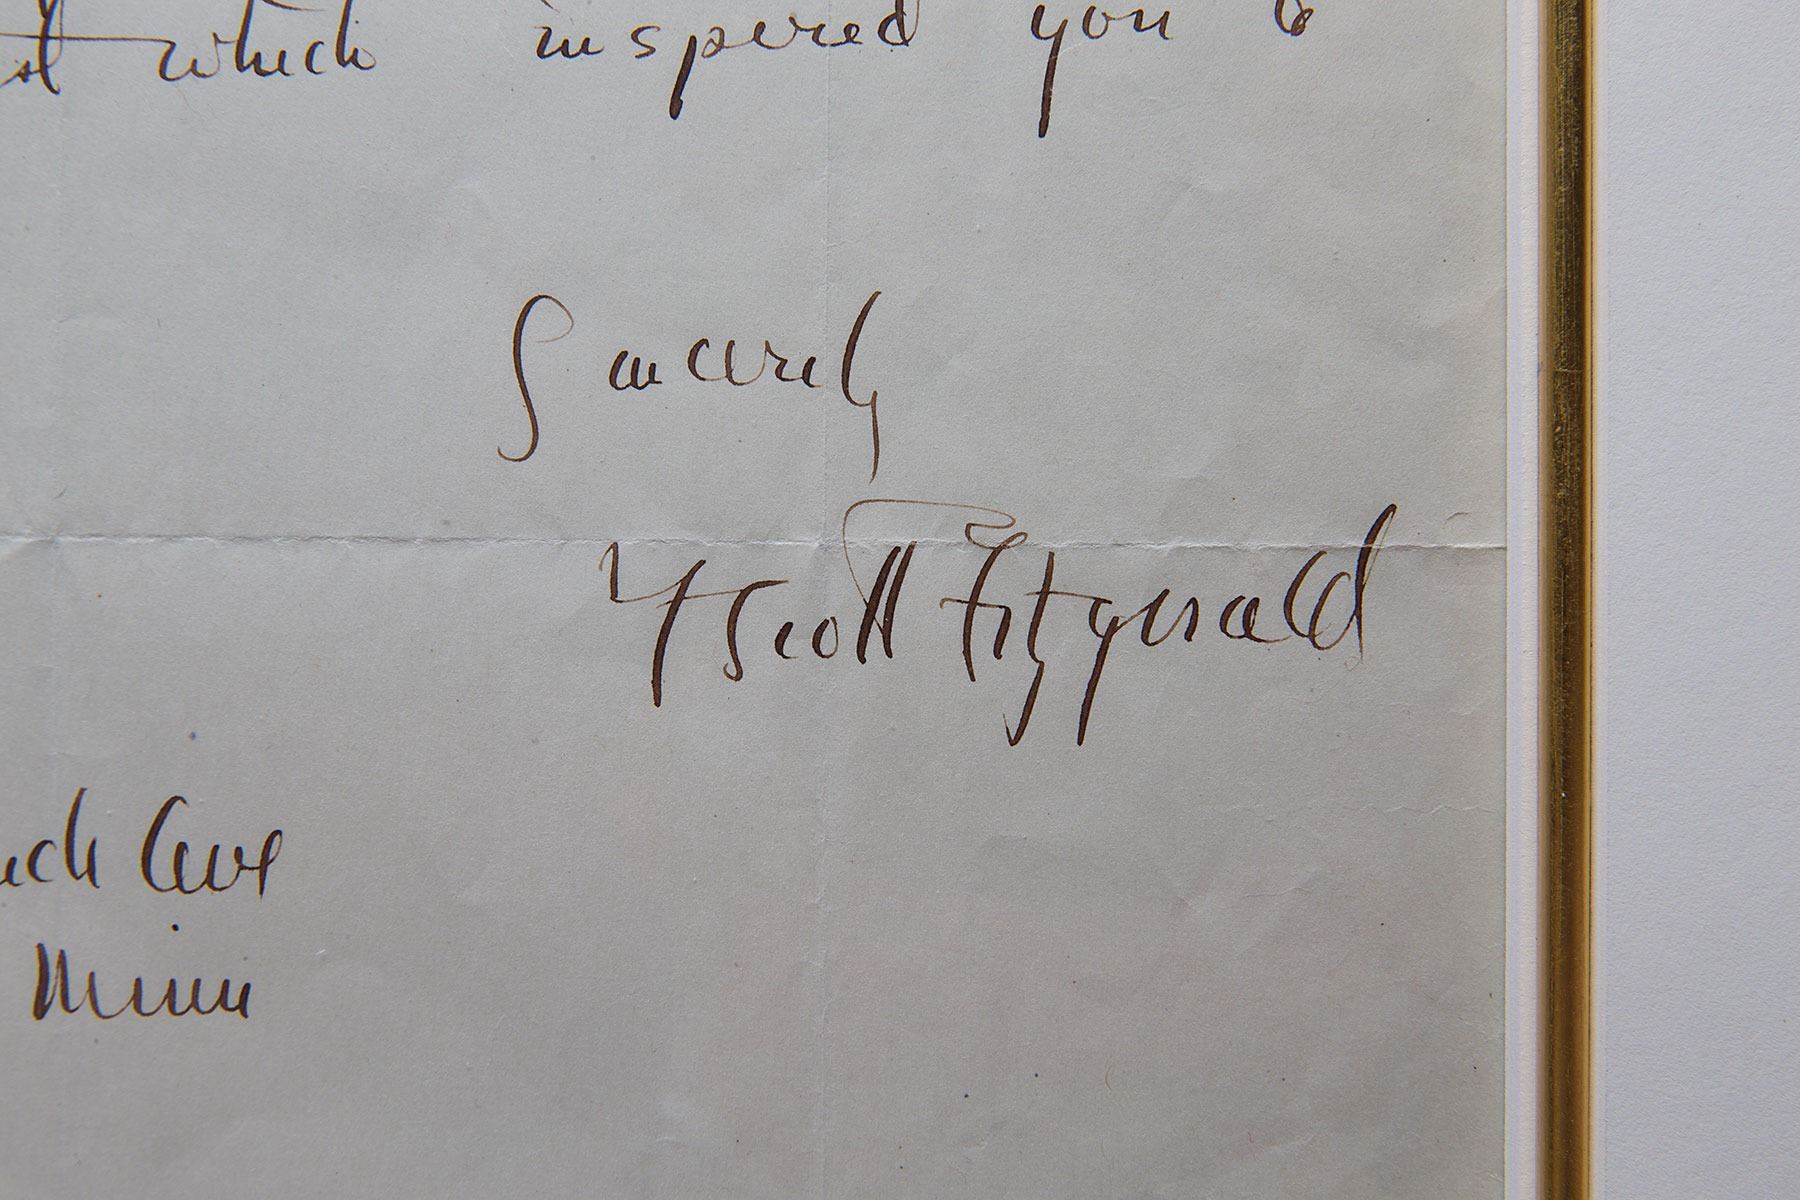 which inspered you to
Sincerely
F Scott Fitzgerald
Ave
Minn